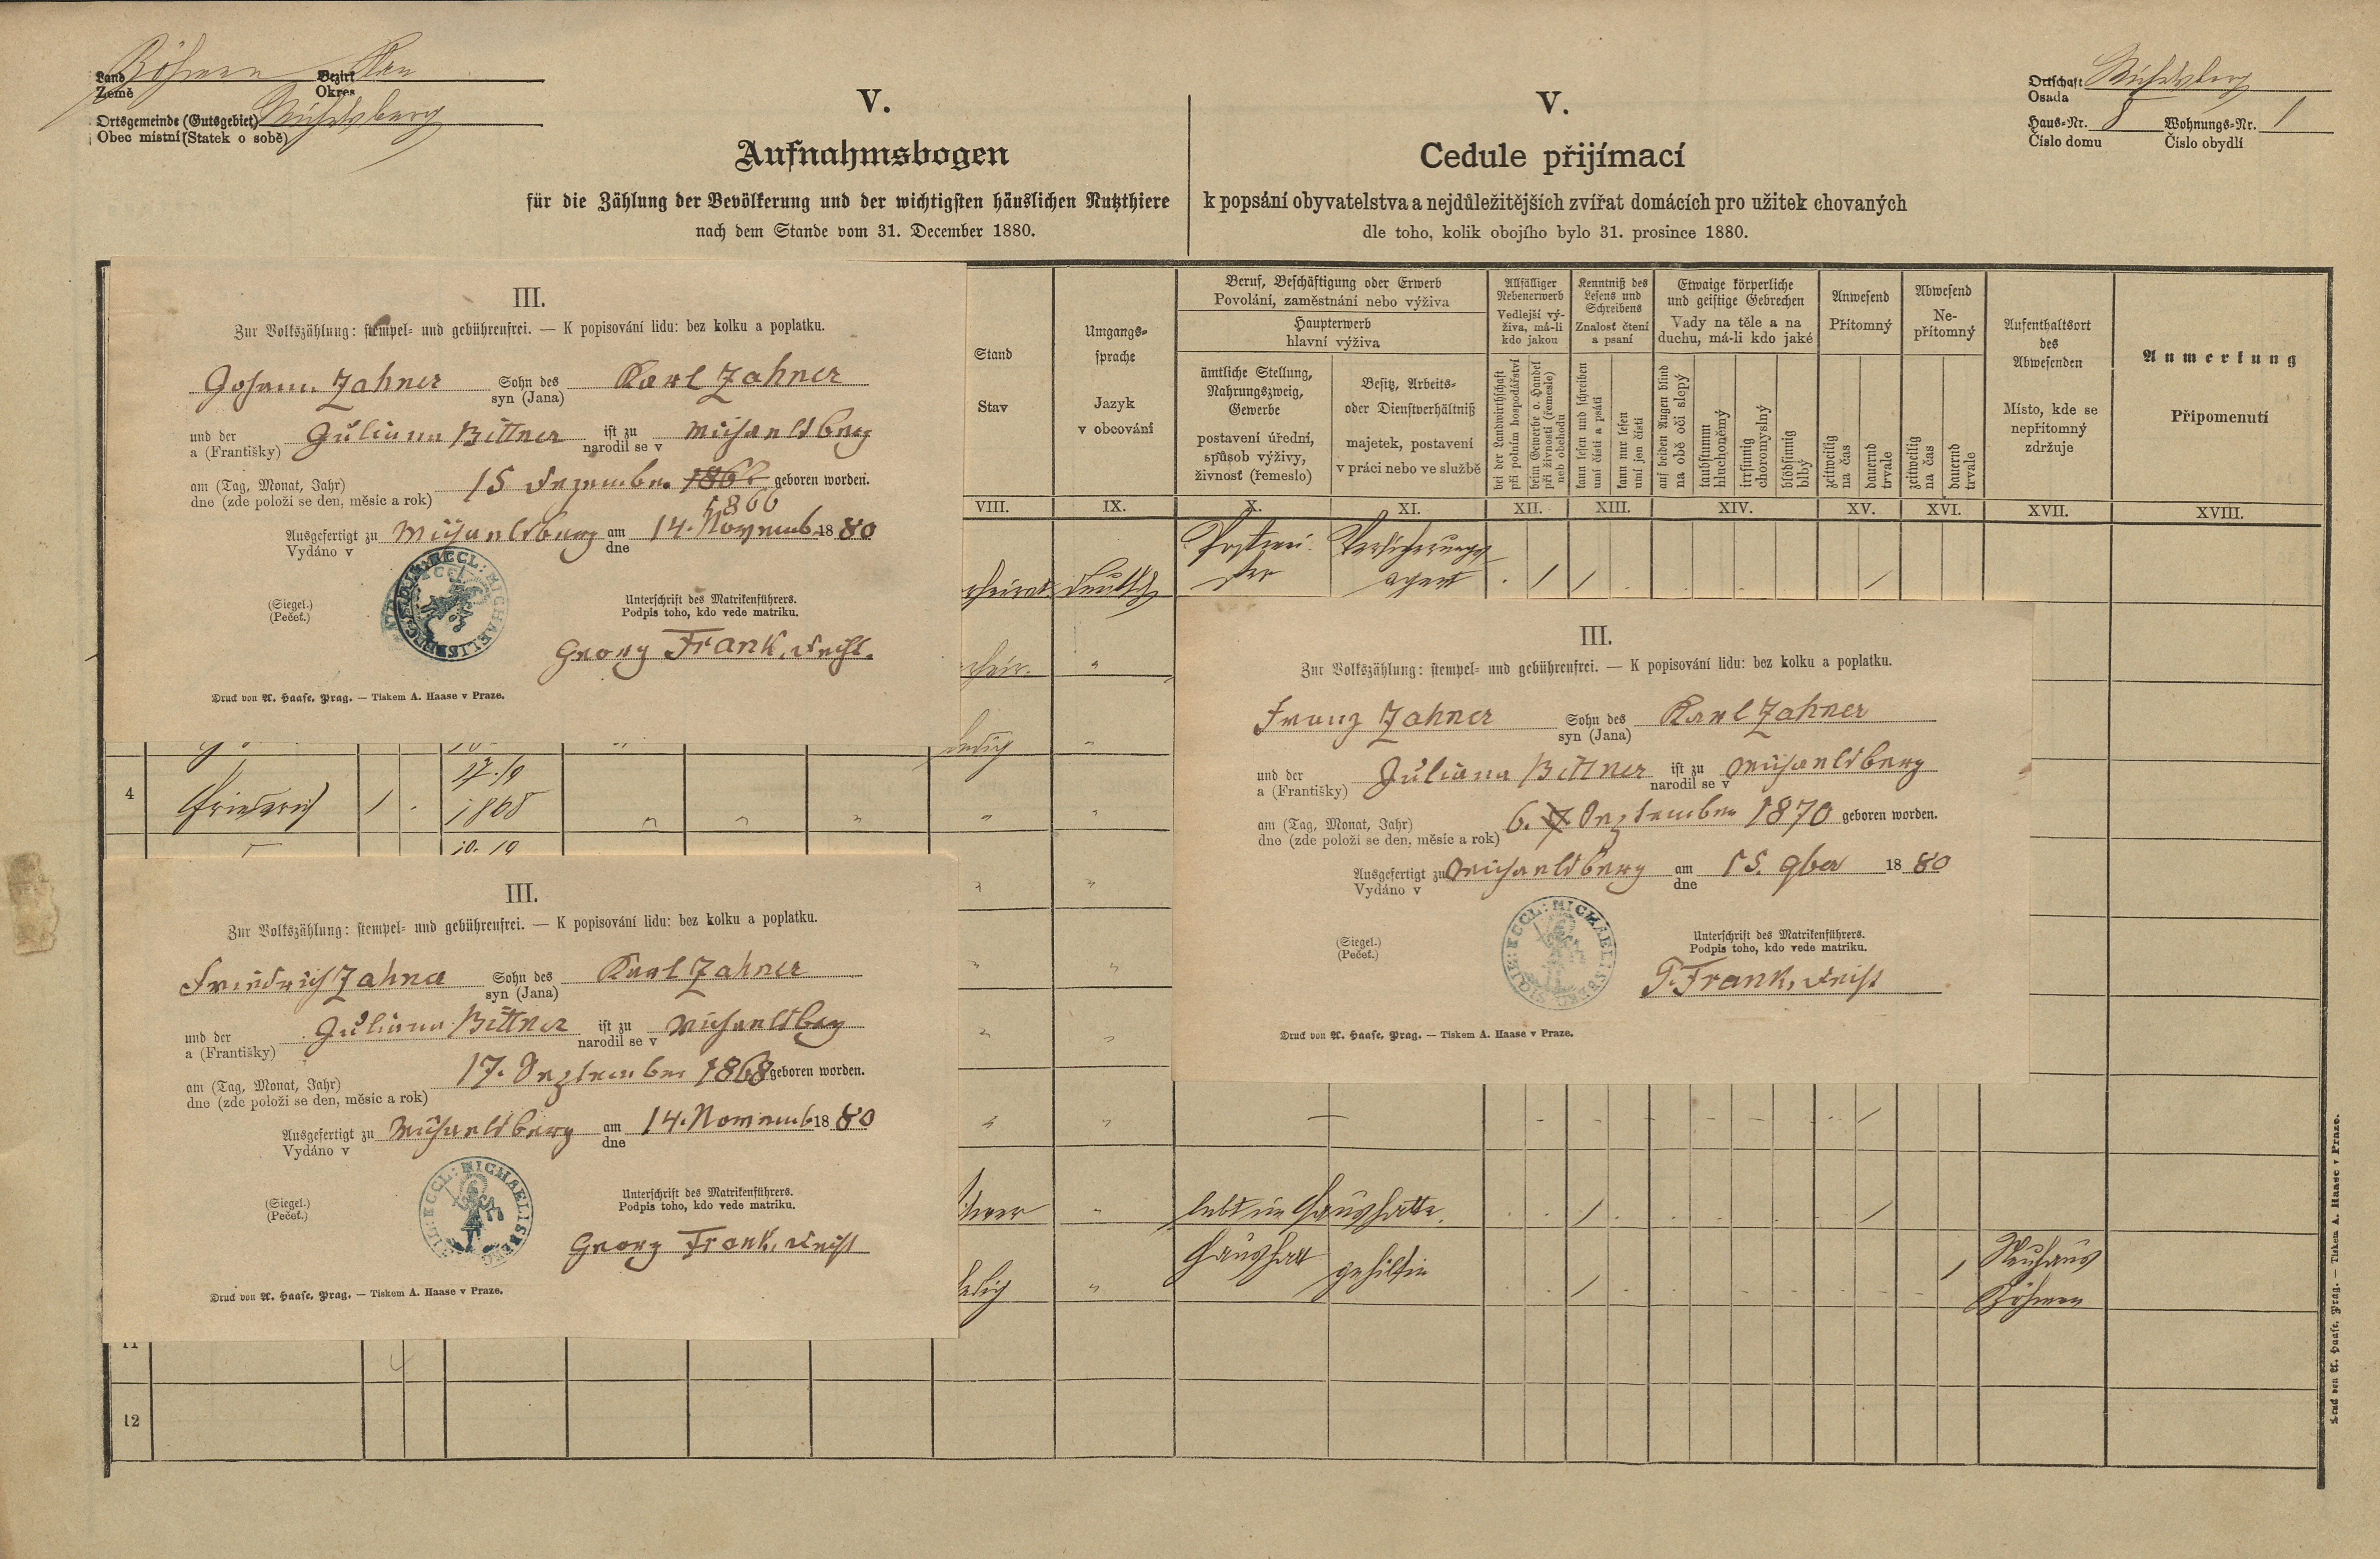 Land Böhmen Bezirk Plan
Země Okres
Ortsgemeinde (Gutsgebiet) Michelsberg
Obec místní (Statek o sobě)
Ortschaft Michelsberg
Osada
Haus-Nr. 8 Wohnungs-Nr. 1
Číslo domu Číslo obydlí
V.
Aufnahmsbogen
für die Zählung der Bevölkerung und der wichtigsten häuslichen Nutzthiere
nach dem Stande vom 31. December 1880.
V.
Cedule přijímací
k popsání obyvatelstva a nejdůležitějších zvířat domácích pro užitek chovaných
dle toho, kolik obojího bylo 31. prosince 1880.
III.
Zur Volkszählung: stempel- und gebührenfrei. — K popisování lidu: bez kolku a poplatku.
Johann Zahner Sohn des Karl Zahner
syn (Jana)
und der Juliana Bittner ist zu Michaelsberg
a (Františky) narodil se v
am (Tag, Monat, Jahr) 15 Dezember 1866 geboren worden.
dne (zde položí se den, měsíc a rok)
Ausgefertigt zu Michaelsberg am 14. Novemb. 1880
Vydáno v dne
(Siegel.) Unterschrift des Matrikenführers.
(Pečeť.) Podpis toho, kdo vede matriku.
Georg Frank, Decht.
Druck von A. Haase, Prag. — Tiskem A. Haase v Praze.
Stand
Stav
VIII.
Umgangs-
sprache
Jazyk
v obcování
IX.
Beruf, Beschäftigung oder Erwerb
Povolání, zaměstnání nebo výživa
Haupterwerb
hlavní výživa
ämtliche Stellung,
Nahrungszweig,
Gewerbe
postavení úřední,
spůsob výživy,
živnosť (řemeslo)
X.
Besitz, Arbeits-
oder Dienstverhältniß
majetek, postavení
v práci nebo ve službě
XI.
Allfälliger
Nebenerwerb
Vedlejší vý-
živa, má-li
kdo jakou
bei der Landwirthschaft
při polním hospodářství
beim Gewerbe o. Handel
při živnosti (řemeslo)
neb obchodu
XII.
Kenntniß des
Lesens und
Schreibens
Znalosť čtení
a psaní
kann lesen und schreiben
umí čísti a psáti
kann nur lesen
umí jen čísti
XIII.
Etwaige körperliche
und geistige Gebrechen
Vady na těle a na
duchu, má-li kdo jaké
auf beiden Augen blind
na obě oči slepý
taubstumm
hluchoněmý
irrsinnig
choromyslný
blödsinnig
blbý
XIV.
Anwesend
Přítomný
zeitweilig
na čas
dauernd
trvale
XV.
Abwesend
Ne-
přítomný
zeitweilig
na čas
dauernd
trvale
XVI.
Aufenthaltsort
des
Abwesenden
Místo, kde se
nepřítomný
zdržuje
XVII.
Anmerkung
Připomenutí
XVIII.
Postmei- Versicherungs-
ster agent
deutsch
ledig
4 Friederich 1 17./9
1868
III.
Zur Volkszählung: stempel- und gebührenfrei. — K popisování lidu: bez kolku a poplatku.
Franz Zahner Sohn des Karl Zahner
syn (Jana)
und der Juliana Bittner ist zu Michaelsberg
a (Františky) narodil se v
am (Tag, Monat, Jahr) 6. September 1870 geboren worden.
dne (zde položí se den, měsíc a rok)
Ausgefertigt zu Michaelsberg am 15. 9ber 1880
Vydáno v dne
(Siegel.) Unterschrift des Matrikenführers.
(Pečeť.) Podpis toho, kdo vede matriku.
Frank, Decht
Druck von A. Haase, Prag. — Tiskem A. Haase v Praze.
III.
Zur Volkszählung: stempel- und gebührenfrei. — K popisování lidu: bez kolku a poplatku.
Friedrich Zahner Sohn des Karl Zahner
syn (Jana)
und der Juliana Bittner ist zu Michaelsberg
a (Františky) narodil se v
am (Tag, Monat, Jahr) 17. September 1868 geboren worden.
dne (zde položí se den, měsíc a rok)
Ausgefertigt zu Michaelsberg am 14. Novemb 1880
Vydáno v dne
(Siegel.) Unterschrift des Matrikenführers.
(Pečeť.) Podpis toho, kdo vede matriku.
Georg Frank, Decht
Druck von A. Haase, Prag. — Tiskem A. Haase v Praze.
lebt im Haushalte.
Haushalt gehilfin
Neuhaus
Böhmen
11
12
Druck von A. Haase, Prag. — Tiskem A. Haase v Praze.